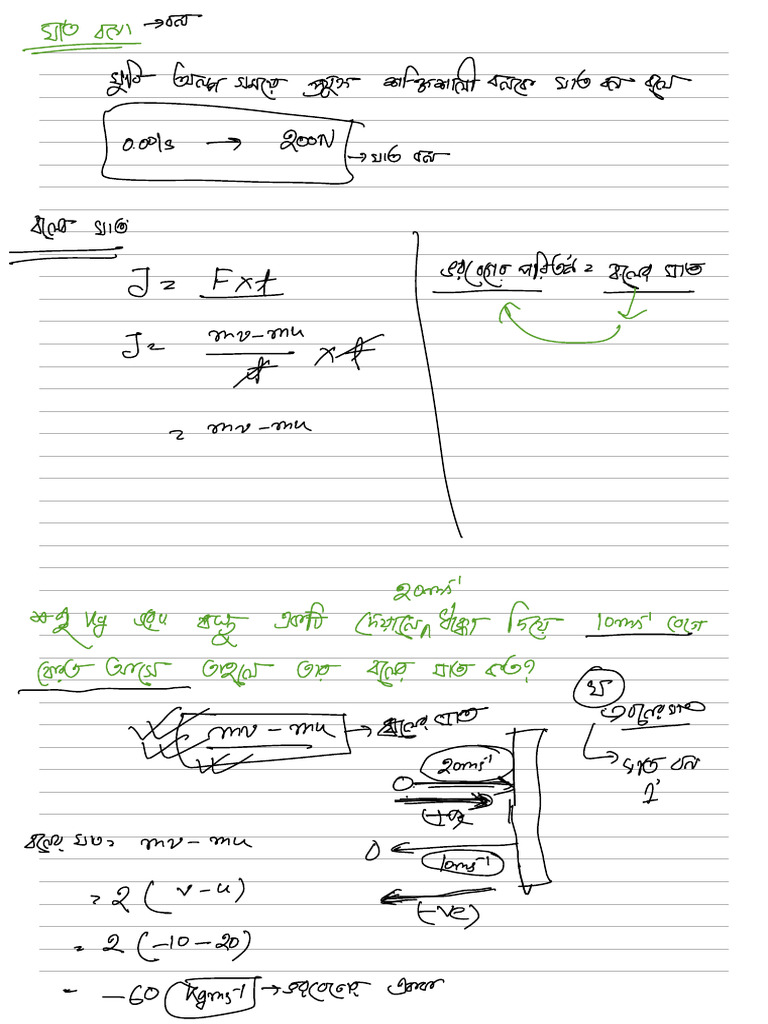 ঘাত বল → বল
খুবই অল্প সময়ে প্রযুক্ত শক্তিশালী বলকে ঘাত বল বলে
0.001s → 200N → ঘাত বল
বলের ঘাত
J = F × t
J = mv - mu / t × t
= mv - mu
ভরবেগের পরিবর্তন = বলের ঘাত
20ms⁻¹
2 kg এর বস্তু একটি দেয়ালে ধাক্কা দিয়ে 10ms⁻¹ বেগে
ফেরত আসে তাহলে তার বলের ঘাত কত?
mv - mu → বলের ঘাত
খ
বলের ঘাত
ঘাত বল
20ms⁻¹
(+ve
10ms⁻¹
(-ve)
বলের ঘাত = mv - mu
= 2 (v - u)
= 2 (-10 - 20)
= -60 kgms⁻¹ → ভরবেগের একক